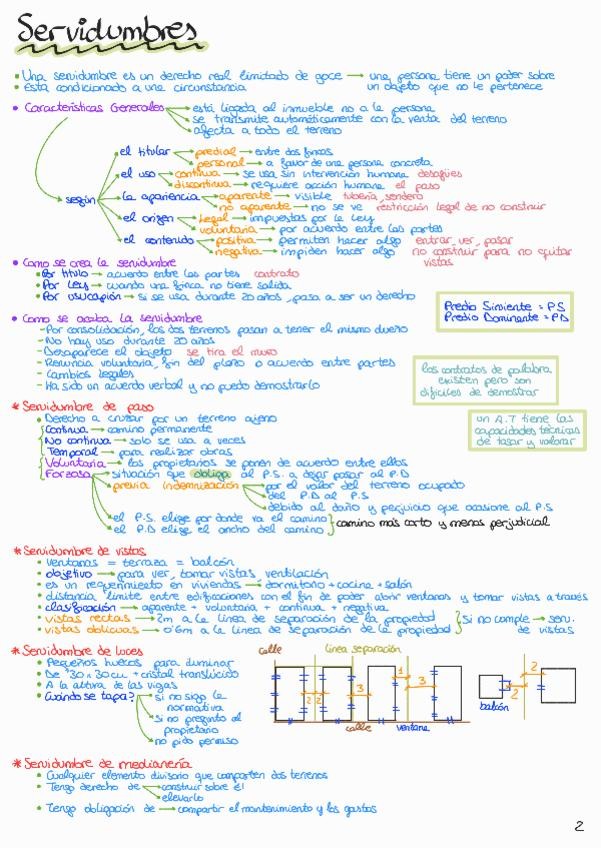 Servidumbres
• Una servidumbre es un derecho real limitado de goce → una persona tiene un poder sobre
• Está condicionado a una circunstancia un objeto que no le pertenece
• Características Generales → está ligada al inmueble no a la persona
→ se transmite automáticamente con la venta del terreno
→ afecta a todo el terreno
según
el titular → predial → entre dos fincas
personal → a favor de una persona concreta
el uso → continua → se usa sin intervención humana desagües
discontinua → requiere acción humana el paso
la apariencia → aparente → visible tubería, sendero
no aparente → no se ve restricción legal de no construir
el origen → Legal → impuestas por la Ley
voluntaria → por acuerdo entre las partes
el contenido → positiva → permiten hacer algo entrar, ver, pasar
negativa → impiden hacer algo no construir para no quitar
vistas
• Como se crea la servidumbre
• Por título → acuerdo entre las partes contrato
• Por Ley → cuando una finca no tiene salida
• Por usucapión → si se usa durante 20 años, pasa a ser un derecho
Predio Sirviente = P.S
Predio Dominante = P.D
• Como se acaba la servidumbre
- Por consolidación, los dos terrenos pasan a tener el mismo dueño
- No hay uso durante 20 años
- Desaparece el objeto se tira el muro
- Renuncia voluntaria, fin del plazo o acuerdo entre partes
- Cambios legales
- Ha sido un acuerdo verbal y no puedo demostrarlo
los contratos de palabra
existen pero son
difíciles de demostrar
* Servidumbre de paso
• Derecho a cruzar por un terreno ajeno
Continua → camino permanente
No continua → solo se usa a veces
Temporal → para realizar obras
Voluntaria → los propietarios se ponen de acuerdo entre ellos
Forzosa → situación que obliga al P.S. a dejar pasar al P.D
previa indemnización → por el valor del terreno ocupado
→ del P.D al P.S
→ debido al daño y perjuicio que ocasione al P.S
el P.S. elige por donde va el camino
el P.D elige el ancho del camino } camino más corto y menos perjudicial
un A.T tiene las
capacidades técnicas
de tasar y valorar
* Servidumbre de vistas
• Ventanas = terraza = balcón
• objetivo → para ver, tomar vistas, ventilación
• es un requerimiento en viviendas → dormitorio + cocina + salón
• distancia límite entre edificaciones con el fin de poder abrir ventanas y tomar vistas a través
• clasificación → aparente + voluntaria + continua + negativa
• vistas rectas → 2m a la línea de separación de la propiedad
• vistas oblicuas → 0'6m a la línea de separación de la propiedad } si no cumple → serv.
de vistas
* Servidumbre de luces
• Pequeños huecos para iluminar
• De 30 x 30 cm + cristal translúcido
• A la altura de las vigas
• Cuándo se tapa? → si no sigo la
normativa
→ si no pregunto al
propietario
→ no pido permiso
calle
línea separación
2 2
3
1
3
calle
ventana
2
2
balcón
* Servidumbre de medianería
• Cualquier elemento divisorio que comparten dos terrenos
• Tengo derecho de → construir sobre él
→ elevarlo
• Tengo obligación de → compartir el mantenimiento y los gastos
2